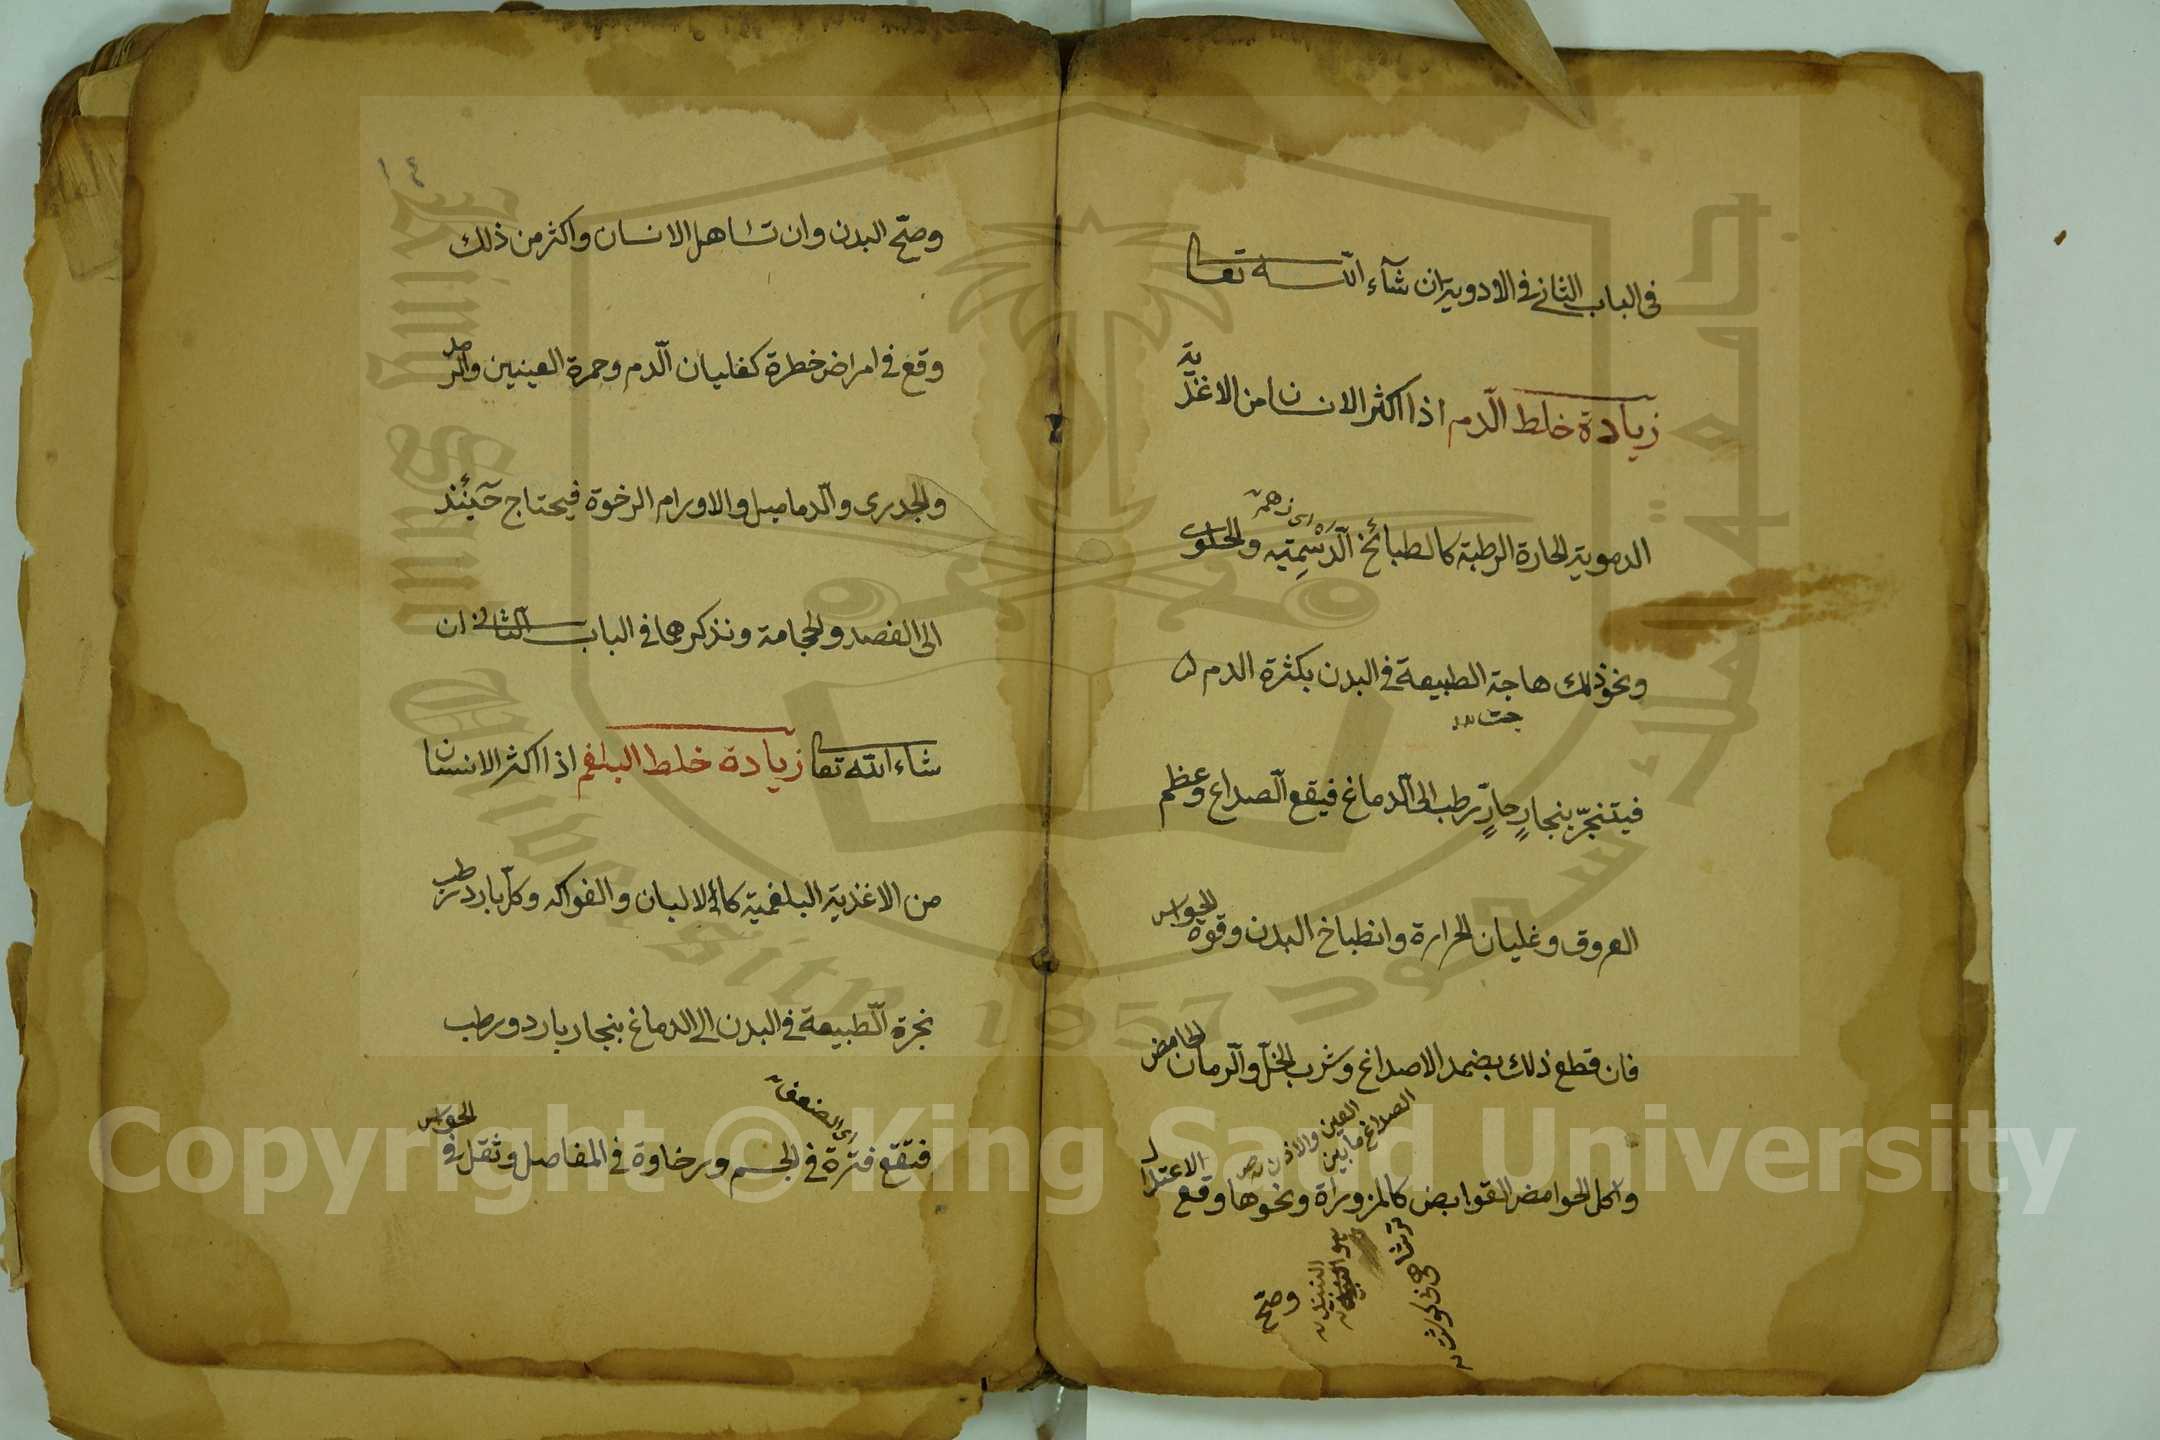 فى الباب الثانى فى الادوية ان شآء اللّه تعا
زيادة خلط الّدم اذا اكثر الانسان من الاغذّية
الدموية الحارة الرطبة كالطبائخ الّدسِمتيه والحلوى
اى زهمه
ونحو ذلك هاجة الطبيعة فى البدن بكثرة الدم
جت
فيتبخّر ببخارٍ حارٍّ رطب الى الّدماغ فيقع الّصداع وعظم
العروق وغليان الحرارة وانطباخ البدن وقوة الحواس
فان قطع ذلك بضمد الاصداغ وشرب الخلّ والّرمان الحامض
الصداغ مابين
العين والاذن
واكل الحوامض القوابض كالمزوراة ونحوها وقع الاعتدال
وصّح
١٤
وصّح البدن وان تساهل الانسان واكثر من ذلك
وقع فى امراض خطرة كغليان الّدم وحمرة العينين والّرمد
والجدرى والّدماميل والاورام الرخوة فيحتاج حينئذ
الى الفصد والحجامة ونذكرهما فى الباب الثانى ان
شاء الله تعا زيادة خلط البلغم اذا اكثر الانسان
من الاغذية البلغمية كالالبان والفواكه وكلّ بارد رطب
بخرة الّطبيعة فى البدن الى الدماغ ببخار بارد ورطب
اى الضعف
فتقع فترة فى الجسم ورخاوة فى المفاصل وثقل فى الحواس
جامعة الملك سعود
King Saud University
1957
Copyright © King Saud University